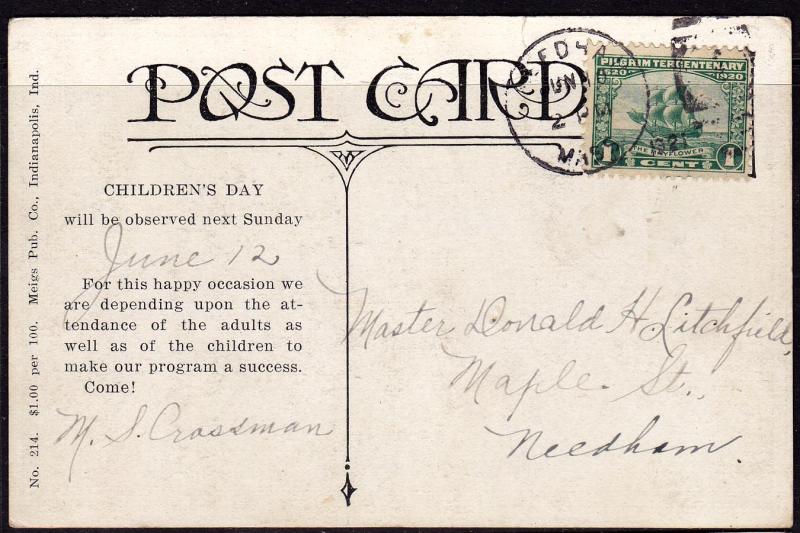 POST CARD
NEEDHAM
JUN
2 P
1921
MASS
PILGRIM TERCENTENARY
1620 1920
THE MAYFLOWER
1 CENT 1
CHILDREN'S DAY
will be observed next Sunday
June 12
For this happy occasion we
are depending upon the at-
tendance of the adults as
well as of the children to
make our program a success.
Come!
M. S. Crossman
Master Donald H Litchfield,
Maple. St.,
Needham.
No. 214. $1.00 per 100. Meigs Pub. Co., Indianapolis, Ind.